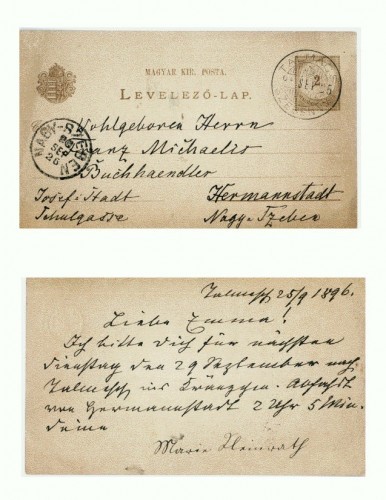 MAGYAR KIR. POSTA.
LEVELEZŐ-LAP.
2
SEP
5
NAGY-SZEBEN
96
SEP
26
Wohlgeboren Herrn
Franz Michaelis
Buchhaendler
Josef-Stadt
Schulgasse
Hermannstadt
Nagy-Szeben
Talmesch 25/9 1896.
Liebe Emma!
Ich bitte Dich für nächsten
Dienstag den 29 September nach
Talmesch ins Kränzchen. Abfahrt
von Hermannstadt 2 Uhr 5 Min.
Deine
Marie